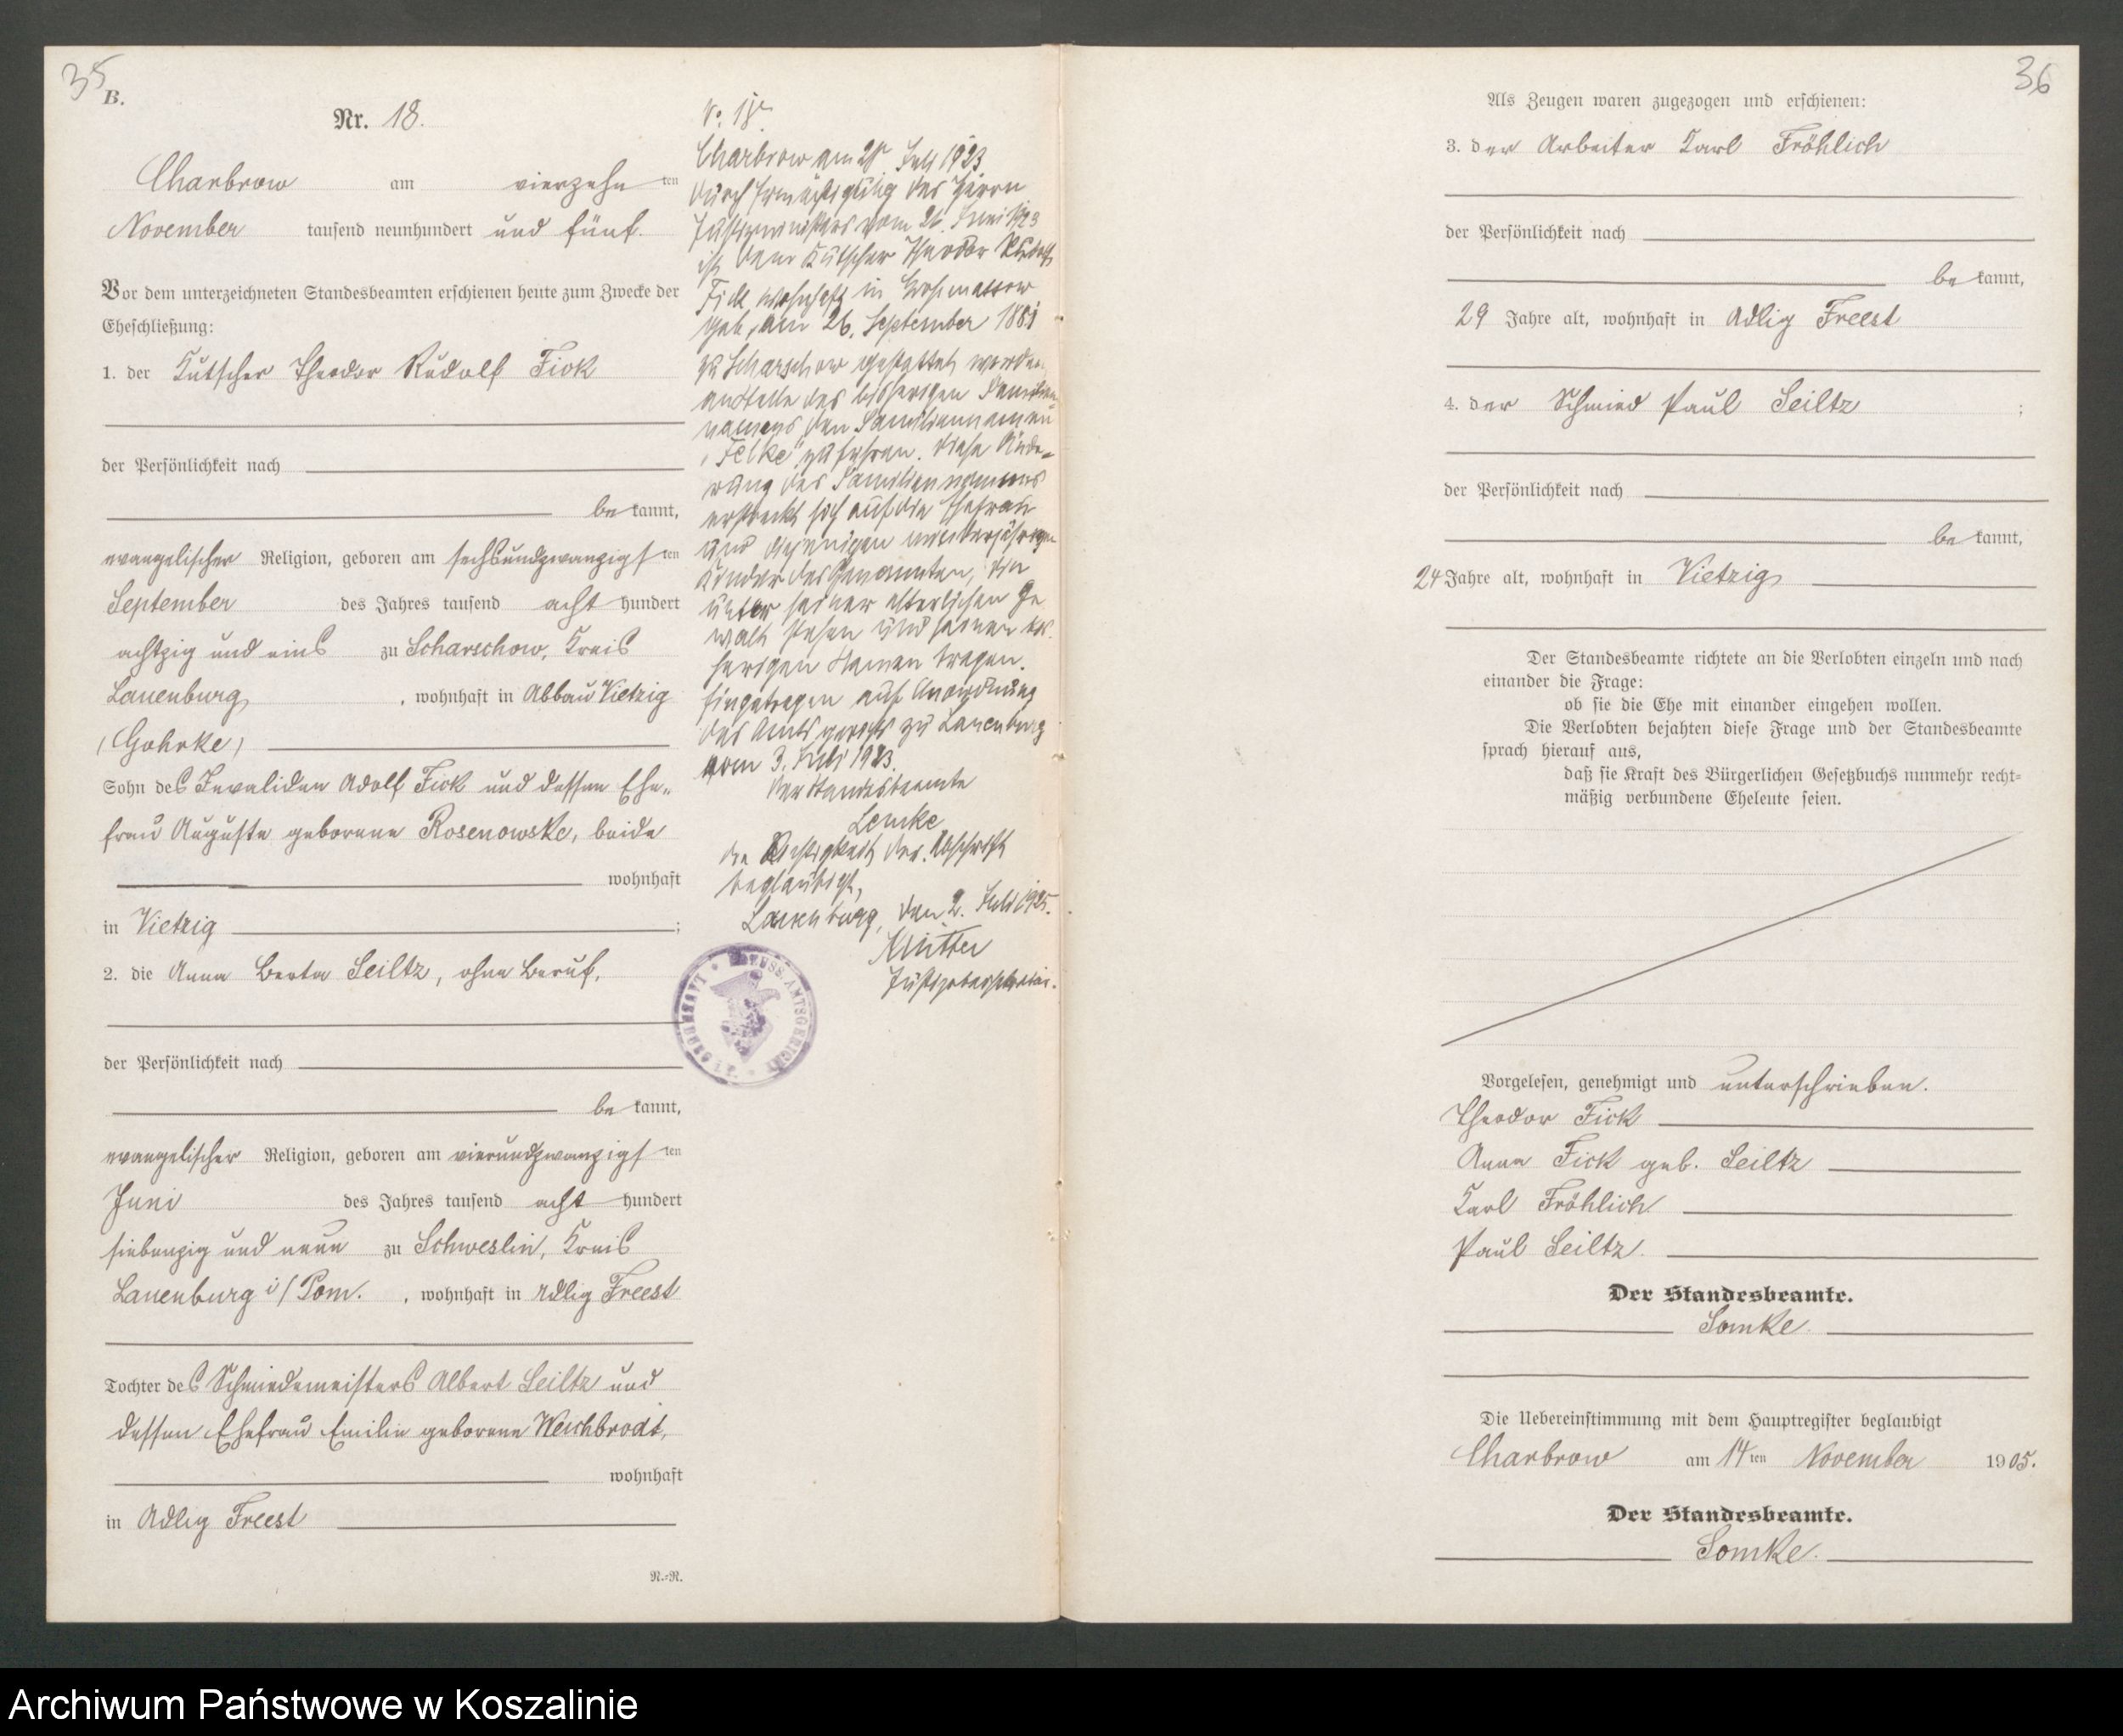 35
B.
Nr. 18.
Charbrow am vierzehn ten
November tausend neunhundert und fünf.
Vor dem unterzeichneten Standesbeamten erschienen heute zum Zwecke der
Eheschließung:
1. der Kutscher Theodor Rudolf Fick
der Persönlichkeit nach
be kannt,
evangelischer Religion, geboren am sechsundzwanzigs ten
September des Jahres tausend acht hundert
achtzig und eins zu Scharschow, Kreis
Lauenburg, wohnhaft in Abbau Vietzig
(Gohrke)
Sohn des Invaliden Adolf Fick und dessen Ehe-
frau Auguste geborene Rosenowske, beide
wohnhaft
in Vietzig ;
2. die Anna Berta Seiltz, ohne Beruf,
der Persönlichkeit nach
be kannt,
evangelischer Religion, geboren am vierundzwanzigs ten
Juni des Jahres tausend acht hundert
siebenzig und neun zu Schweslin, Kreis
Lauenburg i/Pom. , wohnhaft in Adlig Freest
Tochter des Schmiedemeisters Albert Seiltz und
dessen Ehefrau Emilie geborene Weichbrodt,
wohnhaft
in Adlig Freest
N.=R.
Charbrow am Juli 1923
Durch Ermächtigung des Herrn
Justizministers vom 26. Juni 1923
ist dem Kutscher Theodor Rudolf
Fick wohnhaft in
geb. am 26. September 1881
zu Scharschow gestattet worden
anstelle des bisherigen Familien
namens den Familiennamen
"Felke" zu führen. Diese Ände-
rung des Familiennamens
erstreckt sich auf die Ehefrau
und diejenigen minderjährigen
Kinder des Genannten, die
unter seiner elterlichen Ge
walt stehen und seinen bis
herigen Namen tragen.
Eingetragen auf Anordnung
des Amtsgerichts zu Lauenburg
vom 3. Juli 1923.
Der Standesbeamte
Lemke
Die Richtigkeit der Abschrift
beglaubigt,
Lauenburg, den 2. Juli 1925.
Justizobersekretär.
PREUSS. AMTSGERICHT * LAUENBURG
36
Als Zeugen waren zugezogen und erschienen:
3. der Arbeiter Karl Fröhlich
der Persönlichkeit nach
be kannt,
29 Jahre alt, wohnhaft in Adlig Freest
4. der Schmied Paul Seiltz ;
der Persönlichkeit nach
be kannt,
24 Jahre alt, wohnhaft in Vietzig
Der Standesbeamte richtete an die Verlobten einzeln und nach
einander die Frage:
ob sie die Ehe mit einander eingehen wollen.
Die Verlobten bejahten diese Frage und der Standesbeamte
sprach hierauf aus,
daß sie Kraft des Bürgerlichen Gesetzbuchs nunmehr recht=
mäßig verbundene Eheleute seien.
Vorgelesen, genehmigt und unterschrieben.
Theodor Fick
Anna Fick geb. Seiltz
Karl Fröhlich
Paul Seiltz.
Der Standesbeamte.
Lemke.
Die Uebereinstimmung mit dem Hauptregister beglaubigt
Charbrow am 14 ten November 1905.
Der Standesbeamte.
Lemke.
Archiwum Państwowe w Koszalinie